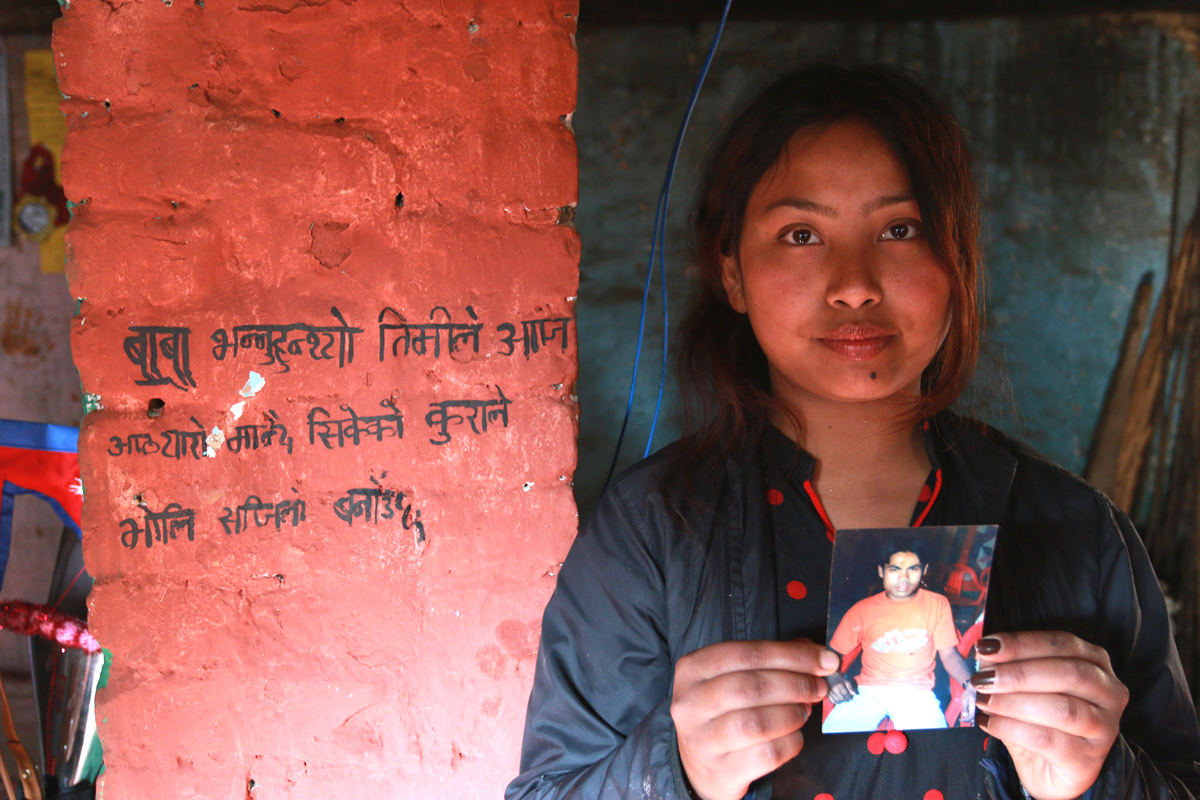 बाबा भन्नुहुन्थ्यो तिमीले आज
अठ्यारो मान्दै सिकेको कुराले
भोलि सजिलो बनाँउछ